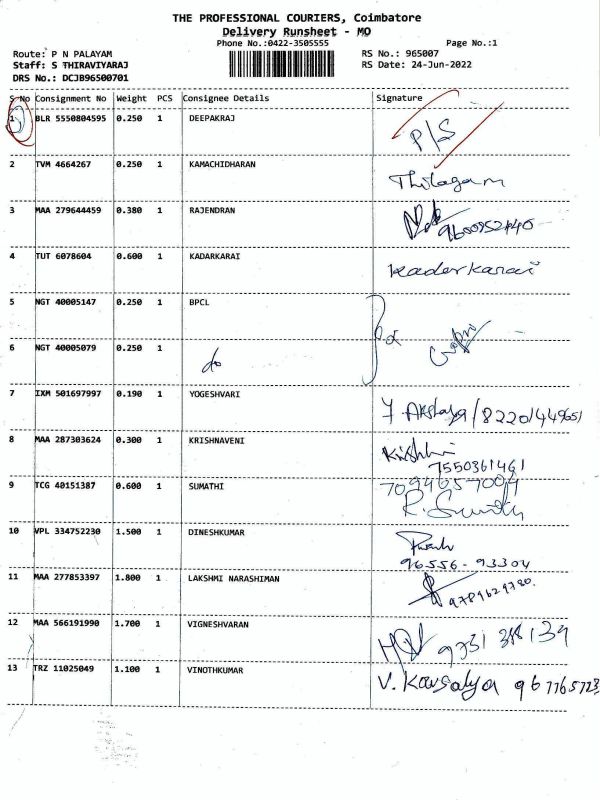 THE PROFESSIONAL COURIERS, Coimbatore
Delivery Runsheet - MO
Phone No.:0422-3505555 Page No.:1
Route: P N PALAYAM RS No.: 965007
Staff: S THIRAVIYARAJ RS Date: 24-Jun-2022
DRS No.: DCJB96500701
S No Consignment No Weight PCS Consignee Details Signature
1 BLR 5550804595 0.250 1 DEEPAKRAJ P/S
2 TVM 4664267 0.250 1 KAMACHIDHARAN Thilagam
3 MAA 279644459 0.380 1 RAJENDRAN
4 TUT 6078604 0.600 1 KADARKARAI Kaderkarai
5 NGT 40005147 0.250 1 BPCL
6 NGT 40005079 0.250 1 do
7 IXM 501697997 0.190 1 YOGESHVARI Y Akshaya/82201449651
8 MAA 287303624 0.300 1 KRISHNAVENI
7550361461
9 TCG 40151387 0.600 1 SUMATHI 7094657004
10 VPL 334752230 1.500 1 DINESHKUMAR
96556-93304
11 MAA 277853397 1.800 1 LAKSHMI NARASHIMAN
9789629780
12 MAA 566191990 1.700 1 VIGNESHVARAN
13 TRZ 11025049 1.100 1 VINOTHKUMAR V. Kavsalya 967765723